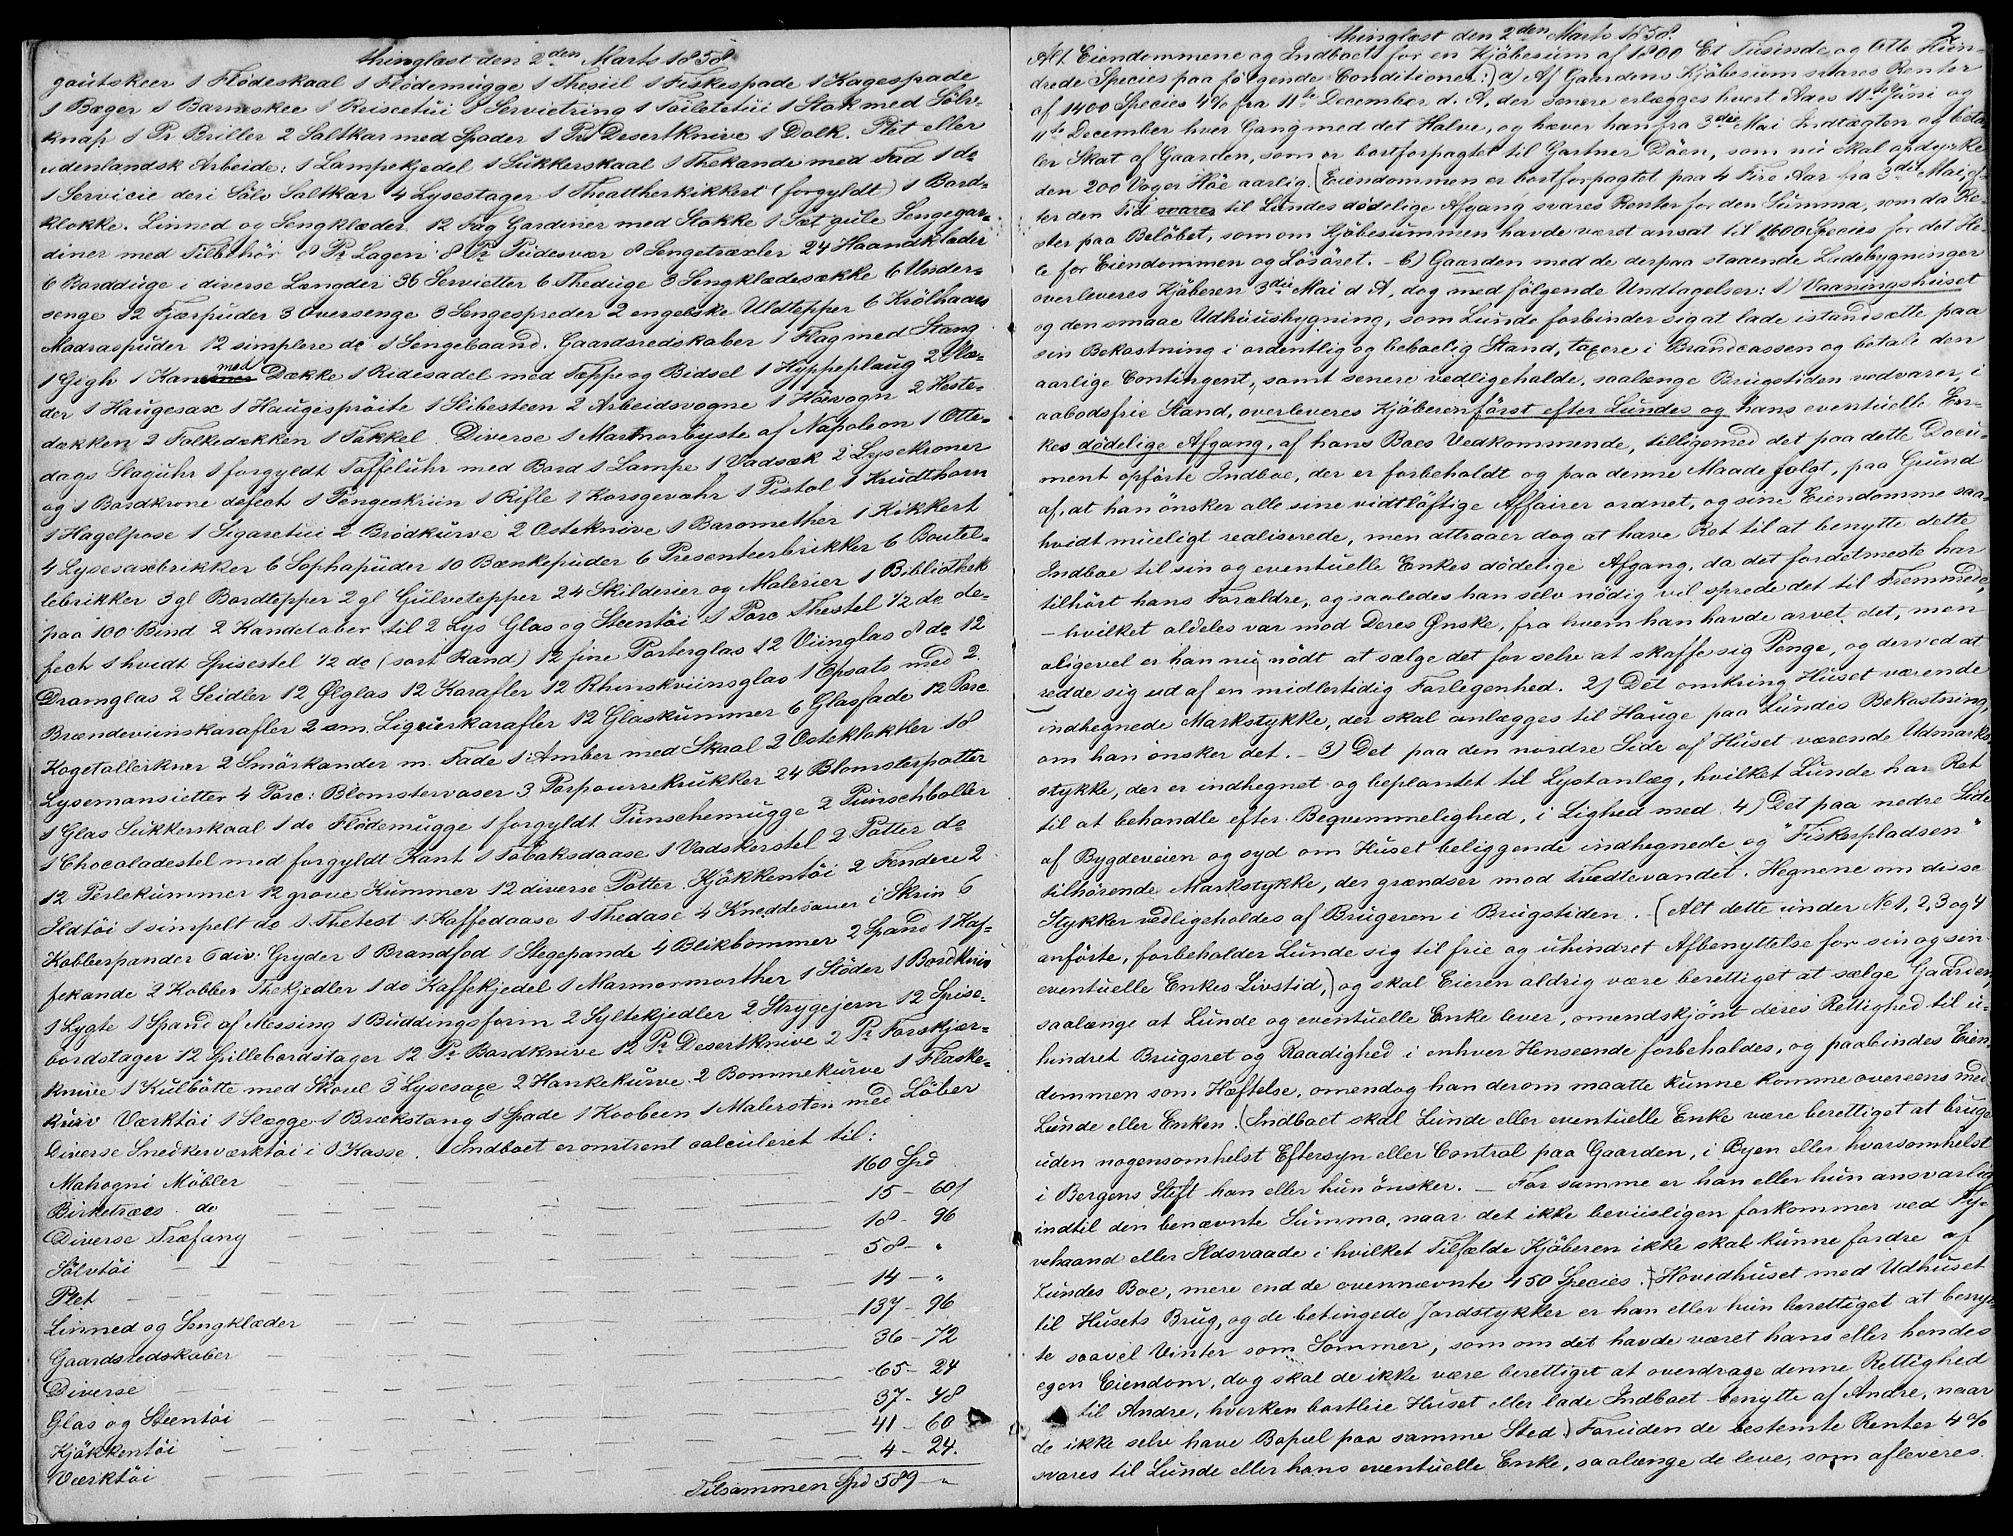 thinglæst den 2den Marts 1858.
gautskeer 1 Flödeskaal 1 Flödemugge 1 Thesiil 1 Fiskespade 1 Kagespade
1 Bæger 1 Barneskee 1 Reisetui 1 Servietring 1 Toiletetui 1 Stok med Sølv-
knap 1 Pr Briller 2 Saltkar med Spader 1 Pr Desertknive 1 Dolk. Plet eller
udenlandsk Arbeide: 1 Lampekjedel 1 Sukkerskaal 1 Thekande med Fad 1 do
1 Servicie deri Sölv Saltkar 4 Lysestager 1 Theattherkikkert (forgyldt) 1 Bord-
klokke. Linned og Sengklæder 12 Fag Gardiner med Stokke 1 Sæt gule Sengegar-
diner med Tilbehör 8 Pr Lagen 8 Pr Pudesvær 8 Sengetræxler 24 Haandklæder
6 Bordduge i diverse Længder 36 Servietter 6 Theduge 3 Sengklædesække 6 Under-
senge 12 Fjærpuder 3 Oversenge 3 Sengespreder 2 engelske Uldtepper 6 Krölhaars
Madraspuder 12 simplere do 1 Sengebaand. Gaardsredskaber 1 Flag med Stang
1 Gigh 1 Kane med Dække 1 Ridesadel med Teppe og Bidsel 1 Hyppeplaug 2 Slæ-
der 1 Haugesax 1 Haugesprøite 1 Slibesteen 2 Arbeidsvogne 1 Høivogn 2 Heste-
dækken 2 Folkedækken 1 Takkel. Diverse 1 Marmorbyste af Napoleon 1 Otte-
dags Slaguhr 1 forgyldt Taffeluhr med Bord 1 Lampe 1 Vadsæk 2 Lysekroner
og 1 Bordkrone defect 1 Pengeskriin 1 Rifle 1 Korsgevahr 1 Pistol 1 Krudthorn
1 Hagelpose 1 Sigaretui 2 Brödkurve 2 Osteknive 1 Baromether 1 Kikkert
4 Lysesaxbrikker 6 Sophapuder 10 Bænkepuder 6 Presenteerbrikker 6 Boutel-
lebrikker 3 gl Bordtepper 2 gl Gulvetepper 24 Skilderier og Malerier 1 Bibliothek
paa 100 Bind 2 Kandelaber til 2 Lys Glas og Steentöi 1 Porc Thestel 1/2 do de-
fect 1 hvidt Spisestel 1/2 do (sort Rand) 12 fine Porterglas 12 Viinglas 8 do 12
Dramglas 2 Seidler 12 Ølglas 12 Karafler 12 Rhinskviinsglas 1 Opsats med 2
Brændeviinskarafler 2 sm. Liqeurkarafler 12 Glaskummer 6 Glasfade 12 Porc
Kogetallerkner 2 Smörkander m. Fade 1 Amber med Skaal 2 Osteklokker 18
Lysemansietter 4 Porc: Blomstervaser 3 Porpourrekrukker 24 Blomsterpotter
1 Glas Sukkerskaal 1 do Flödemugge 1 forgyldt Punschemugge 2 Punschboller
1 Chocoladestel med forgyldt Kant 1 Tobaksdaase 1 Vadskerstel 2 Potter do
12 Perlekummer 12 grove Kummer 12 diverse Potter. Kjökkentöi 2 Fendere 2
Ildtöi 1 simpelt do 1 Thetest 1 Kaffedaase 1 Thedase 4 Kneddesauer i Skrin 6
Kobberpander 6 div: Gryder 1 Brandfod 1 Stegepande 4 Blikbommer 2 Spand 1 Kaf-
fekande 2 Kobber Thekjedler 1 do Kaffekjedel 1 Marmormorther 1 Stöder 1 Bordkniv
1 Lygte 1 Spand af Messing 1 Buddingsform 2 Syltekjedler 2 Strygejern 12 Spise-
bordstager 12 Spillebordstager 12 Pr Bordknive 12 Pr Desertknive 2 Pr Forskjær-
knive 1 Kulbötte med Skovl 3 Lysesaxe 2 Hankekurve 2 Bommekurve 1 Flaske-
kurv Værktöi 1 Slægge 1 Brækstang 1 Spade 1 Koobeen 1 Malersten med Löber
Diverse Snedkerværktöi i 1 Kasse. Indboet er omtrent calculeret til:
Mahogni Möbler 160 Spd
Birketræes do 15 - 60
Diverse Træfang 18 - 96
Sölvtöi 58 - "
Plet 14 - "
Linned og Sengklæder 137 - 96
Gaardsredskaber 36 - 72
Diverse 65 - 24
Glas og Steentöi 37 - 48
Kjökkentöi 41 - 60
Værktöi 4 - 24.
Tilsammen Spd 589 - "
thinglæst den 2den Marts 1858.
2
Alt Eiendommene og Indboet for en Kjöbesum af 1800 Et Tusinde og Otte Hun-
drede Species paa fölgende Conditioner: a) Af Gaardens Kjöbesum svares Renter
af 1400 Species 4% fra 11te December d. A, der senere erlægges hvert Aars 11te Juni og
11te December hver Gang med det Halve, og hæver han fra 3die Mai Indtægten og beta-
ler Skat af Gaarden, som er bortforpagtet til Gartner Döen, som nu skal opdyrke
den 200 Voger Höe aarlig. (Eiendommen er bortforpagtet paa 4 Fire Aar fra 3die Mai, ef-
ter den Tid svares til Lundes dödelige Afgang svares Renter for den Summa, som da Re-
ster paa Belöbet, som om Kjöbesummen havde været ansat til 1600 Species for det He-
le for Eiendommen og Lösöret. - b) Gaarden med de derpaa staaende Ladebygninger
overleveres Kjöberen 3die Mai d A, dog med fölgende Undtagelser: 1) Vaaningshuset
og den smaae Udhuusbygning, som Lunde forbinder sig at lade istandsætte paa
sin Bekostning i ordentlig og beboelig Stand, taxere i Brandcassen og betale den
aarlige Contingent, samt senere vedligeholde, saalænge Brugstiden vedvarer, i
aabodsfrie Stand, overleveres Kjöberen först efter Lundes og hans eventuelle En-
kes dödelige Afgang, af hans Boes Vedkommende, tilligemed det paa dette Docu-
ment opförte Indboe, der er forbeholdt og paa denne Maade solgt, paa Grund
af, at han önsker alle sine vidtlöftige Affairer ordnet, og sine Eiendomme saa-
hvidt mueligt realiserede, men attraaer dog at have Ret til at benytte dette
Indboe til sin og eventuelle Enkes dödelige Afgang, da det fordetmeste har
tilhört hans Forældre, og saaledes han selv nödig vil sprede det til Fremmede,
- hvilket aldeles var mod Deres Ønske, fra hvem han havde arvet det, men
aligevel er han nu nödt at sælge det for selv at skaffe sig Penge, og derved at
redde sig ud af en midlertidig Forlegenhed. 2) Det omkring Huset værende
indhegnede Markstykke, der skal anlægges til Hauge paa Lundes Bekostning,
om han önsker det. - 3) Det paa den nordre Side af Huset værende Udmarks-
stykke, der er indhegnet og beplantet til Lystanlæg, hvilket Lunde har Ret
til at behandle efter Beqvemmelighed, i Lighed med 4) Det paa nedre Side
af Bygdeveien og syd om Huset beliggende indhegnede og "Fiskerpladsen"
tilhörende Markstykke, der grændser mod Tvedtevandet. Hegnene om disse
Stykker vedligeholdes af Brugeren i Brugstiden. (Alt dette under No 1, 2, 3 og 4
anförte, forbeholder Lunde sig til frie og uhindret Afbenyttelse for sin og sin
eventuelle Enkes Livstid,) og skal Eieren aldrig være berettiget at sælge Gaarden,
saalænge at Lunde og eventuelle Enke lever, omendskjönt deres Rettighed til u-
hindret Brugsret og Raadighed i enhver Henseende forbeholdes, og paabindes Eien-
dommen som Hæftelse, omendog han derom maatte kunne komme overeens med
Lunde eller Enken. (Indboet skal Lunde eller eventuelle Enke være berettiget at bruge
uden nogensomhelst Eftersyn eller Control paa Gaarden, i Byen eller hvorsomhelst
i Bergens Stift han eller hun önsker. - For samme er han eller hun ansvarlig
indtil den benævnte Summa, naar det ikke beviisligen forkommer ved Ty-
vehaand eller Ildsvaade i hvilket Tilfælde Kjöberen ikke skal kunne fordre af
Lundes Boe, mere end de ovennævnte 450 Species. Hovedhuset med Udhuset
til Husets Brug, og de betingede Jordstykker er han eller hun berettiget at benyt-
te saavel Vinter som Sommer, som om det havde været hans eller hendes
egen Eiendom, dog skal de ikke være berettiget at overdrage denne Rettighed
til Andre, hverken bortleie Huset eller lade Indboet benytte af Andre, naar
de ikke selv have Bopæl paa samme Sted.) Foruden de bestemte Renter 4%
svares til Lunde eller hans eventuelle Enke, saalænge de leve, som afleveres